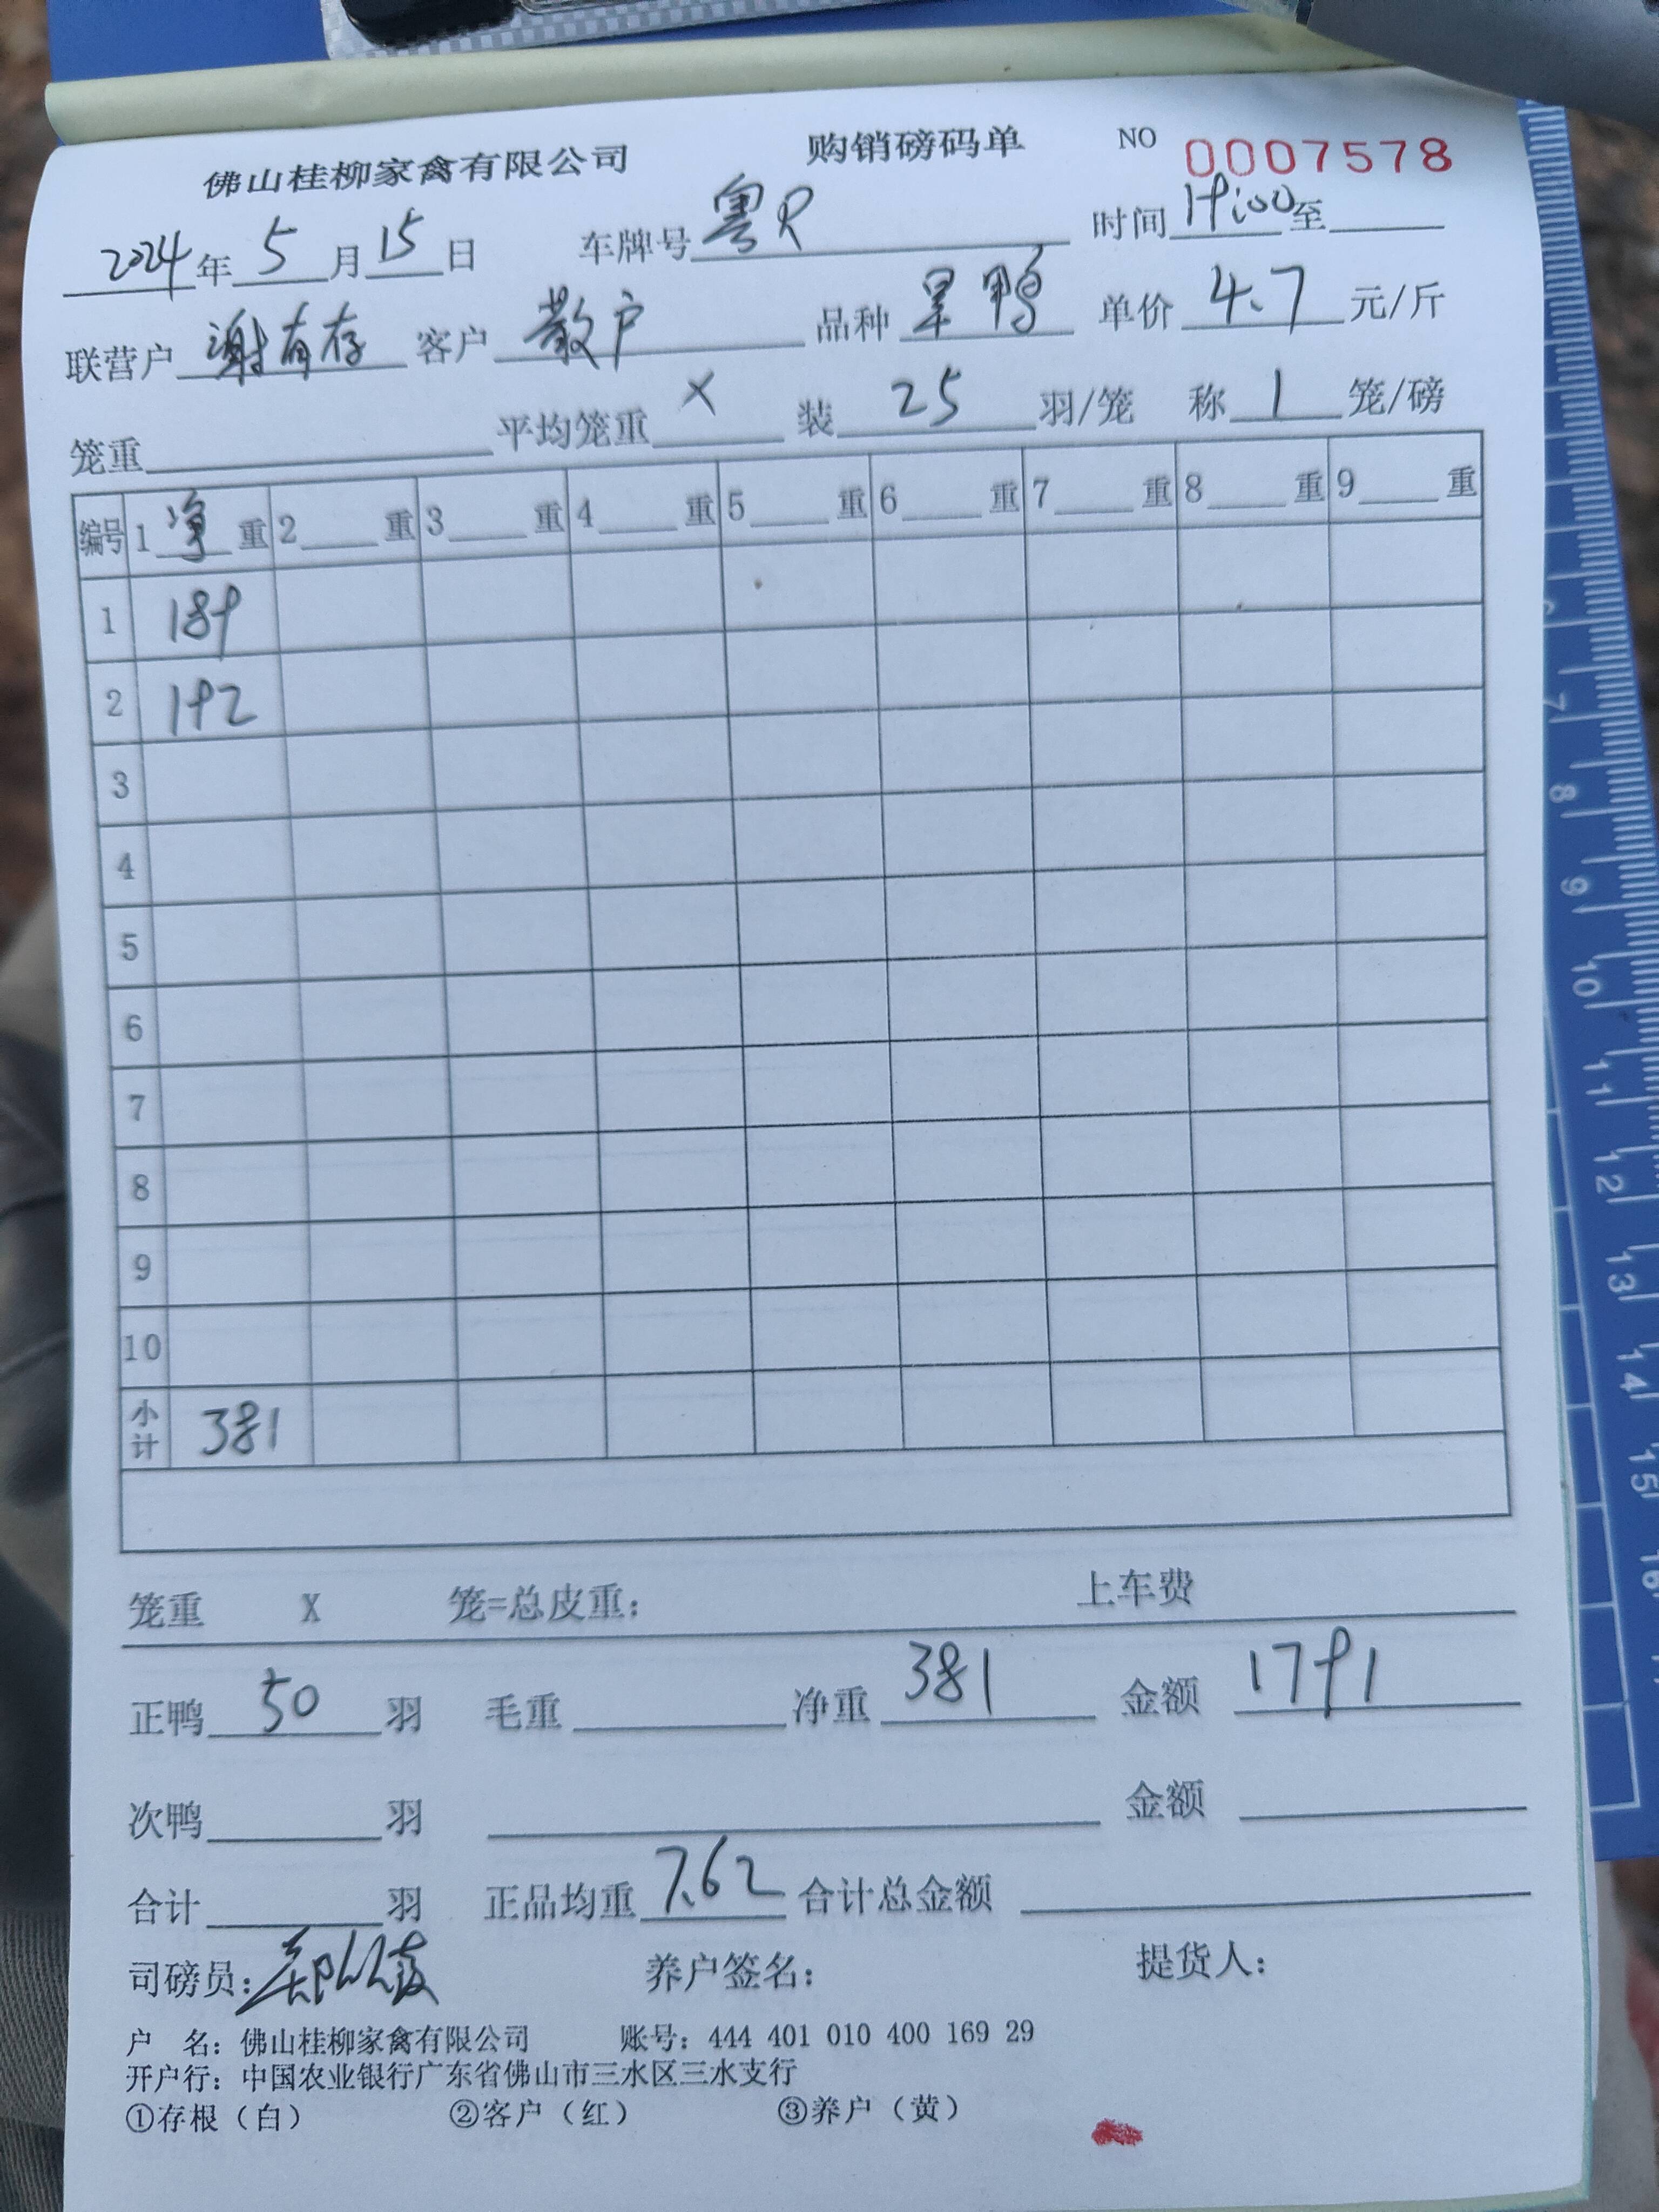 佛山桂柳家禽有限公司 购销磅码单 NO 0007578
2024年5月15日 车牌号粤R 时间19:00至
联营户谢有存 客户散户 品种旱鸭 单价4.7元/斤
笼重 平均笼重X 装25羽/笼 称1笼/磅
编号 1净重 2重 3重 4重 5重 6重 7重 8重 9重
1 189
2 192
3
4
5
6
7
8
9
10
小计 381
笼重 X 笼=总皮重: 上车费
正鸭50羽 毛重 净重381 金额1791
次鸭 羽 金额
合计 羽 正品均重7.62 合计总金额
司磅员: 养户签名: 提货人:
户 名: 佛山桂柳家禽有限公司 账号: 444 401 010 400 169 29
开户行: 中国农业银行广东省佛山市三水区三水支行
①存根(白) ②客户(红) ③养户(黄)
6
7
8
9
10
11
12
13
14
15
16